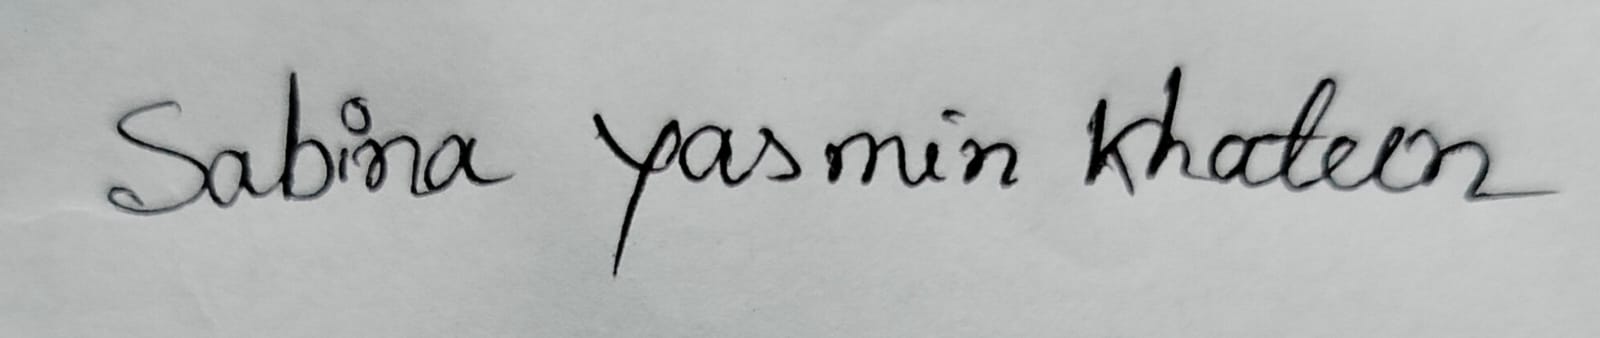 Sabina yasmin Khateen